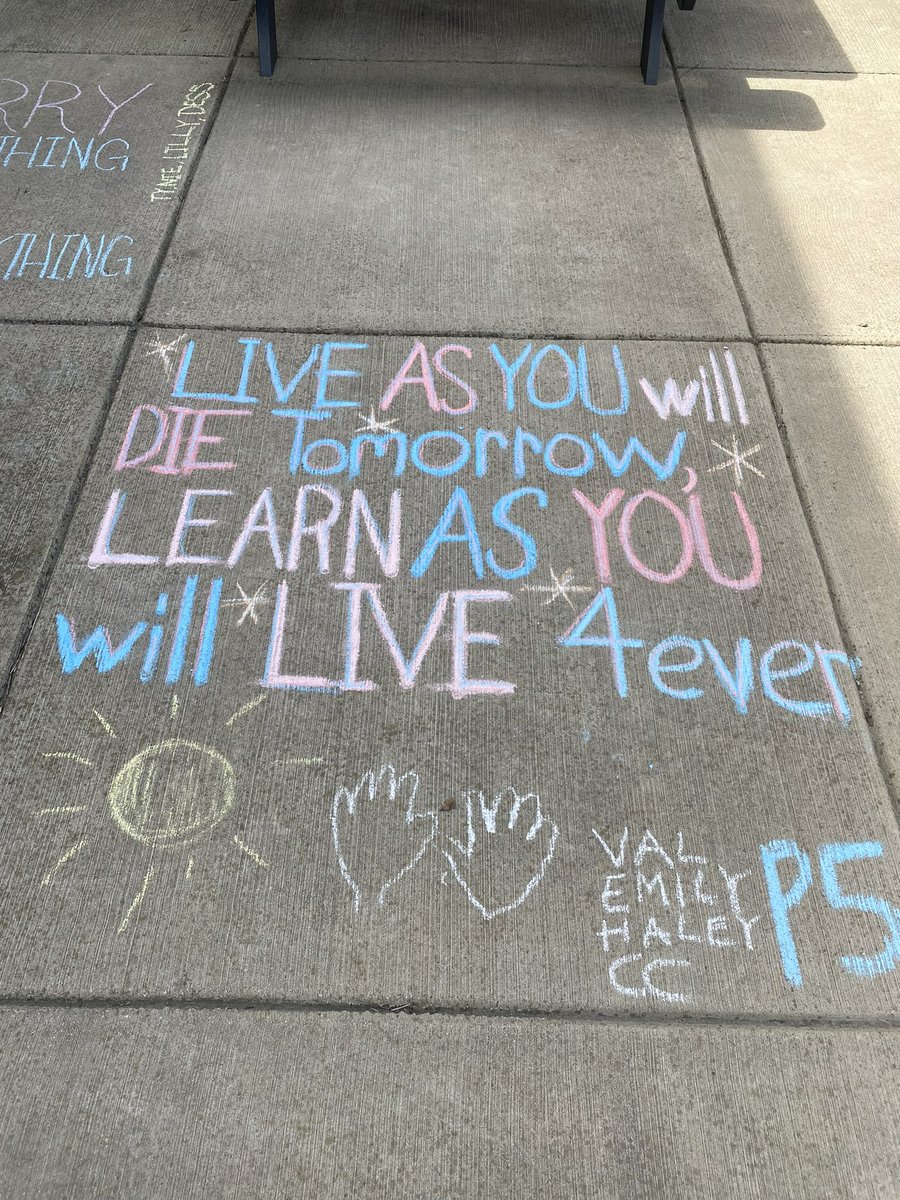 RRY
THING
YTHING
TYNIE, LILLY, DESS
LIVE AS YOU will
DIE Tomorrow,
LEARN AS YOU
will LIVE 4ever
VAL
EMILY
HALEY
CC
P5